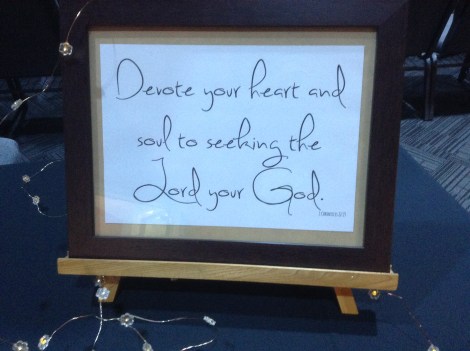 Devote your heart and
soul to seeking the
Lord your God.